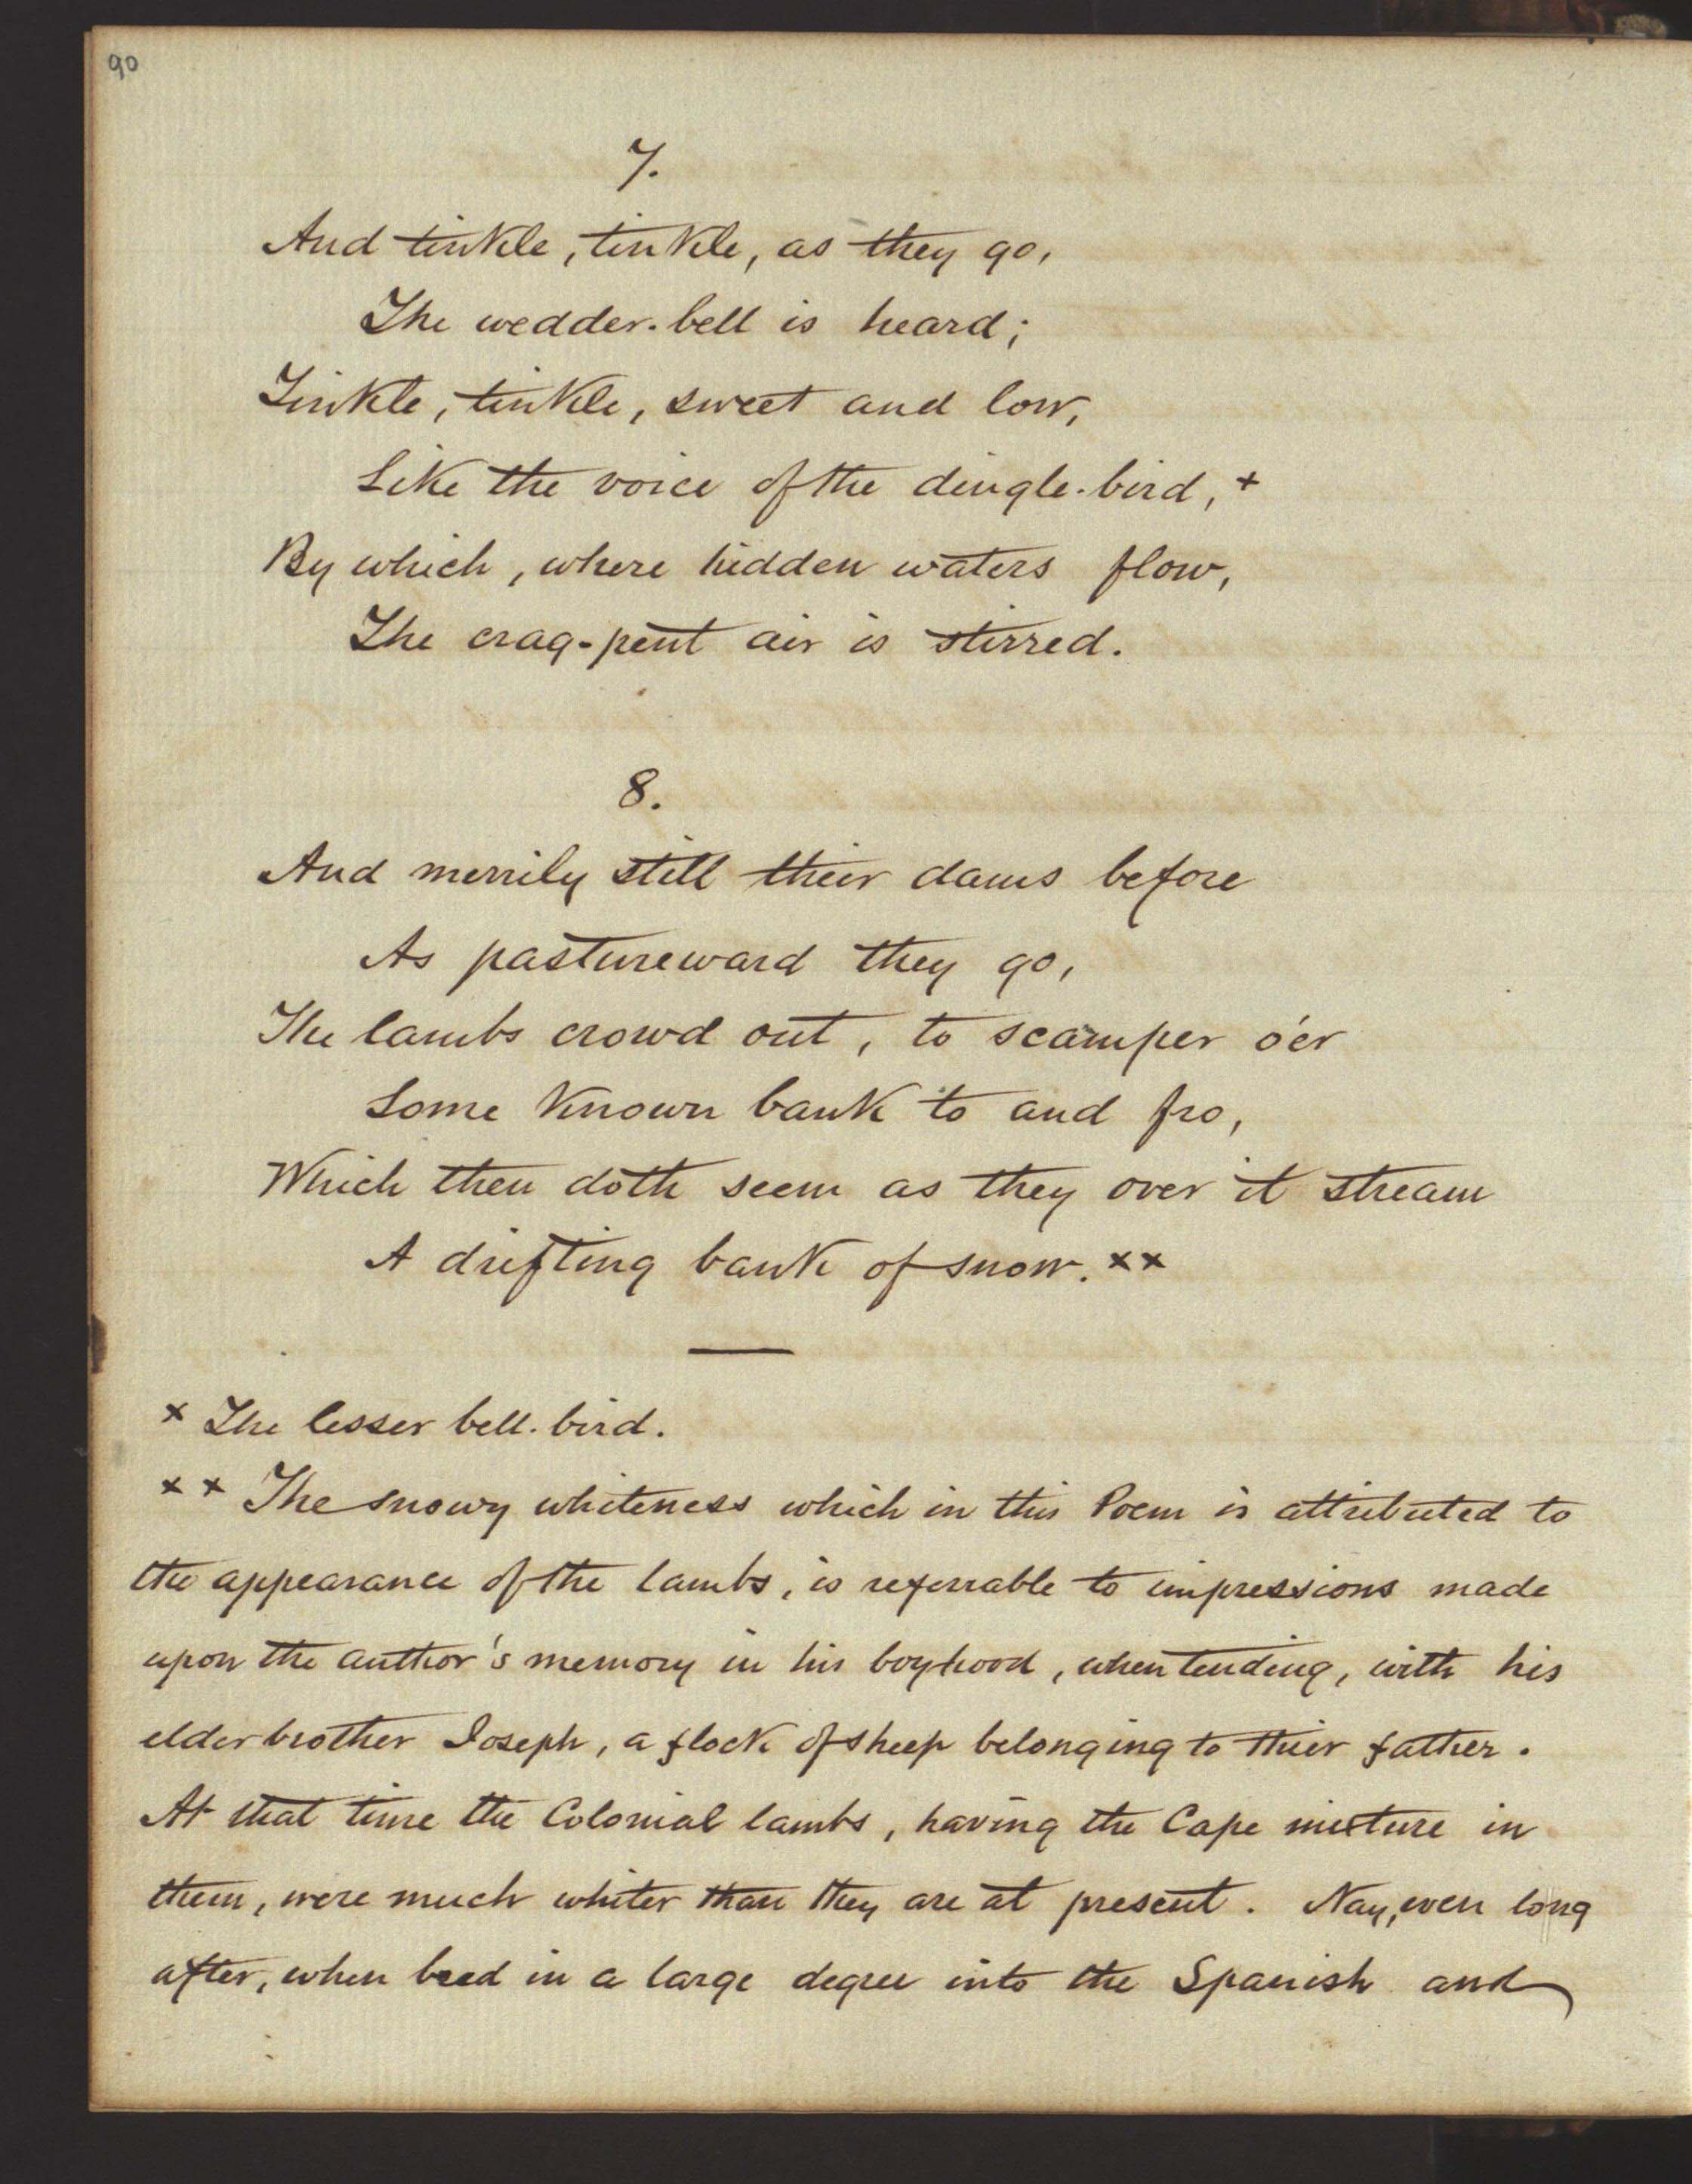 90
7.
And tinkle, tinkle, as they go,
The wedder-bell is heard;
Tinkle, tinkle, sweet and low,
Like the voice of the dingle-bird, +
By which, where hidden waters flow,
The crag-pent air is stirred.
8.
And merrily still their dams before
As pastureward they go,
The lambs crowd out, to scamper o'er
Some known bank to and fro,
Which then doth seem as they over it stream
A drifting bank of snow. xx
x The lesser bell-bird.
x x The snowy whiteness which in this Poem is attributed to
the appearance of the lambs, is referrable to impressions made
upon the author's memory in his boyhood, when tending, with his
elder brother Joseph, a flock of sheep belonging to their father.
At that time the Colonial lambs, having the Cape mixture in
them, were much whiter than they are at present. Nay, even long
after, when bred in a large degree into the Spanish and